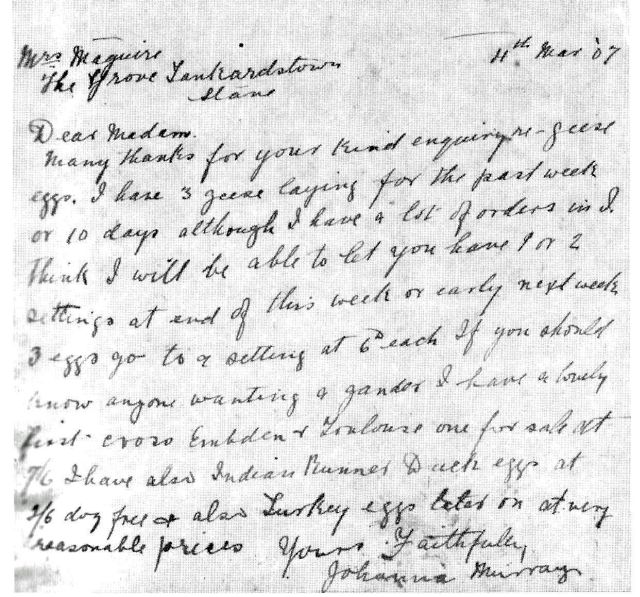 Mrs Maguire 4th Mar '07
The Grove Tankardstown
Slane
Dear Madam.
Many thanks for your kind enquiry re-geese
eggs. I have 3 geese laying for the past week
or 10 days although I have a lot of orders in I
think I will be able to let you have 1 or 2
settings at end of this week or early next week
3 eggs go to a setting at 6D each If you should
know anyone wanting a gander I have a lovely
first cross Embden & Toulouse one for sale at
7/6 I have also Indian Runner Duck eggs at
2/6 doz free & also Turkey eggs later on at very
reasonable prices Yours Faithfully
Johanna Murray